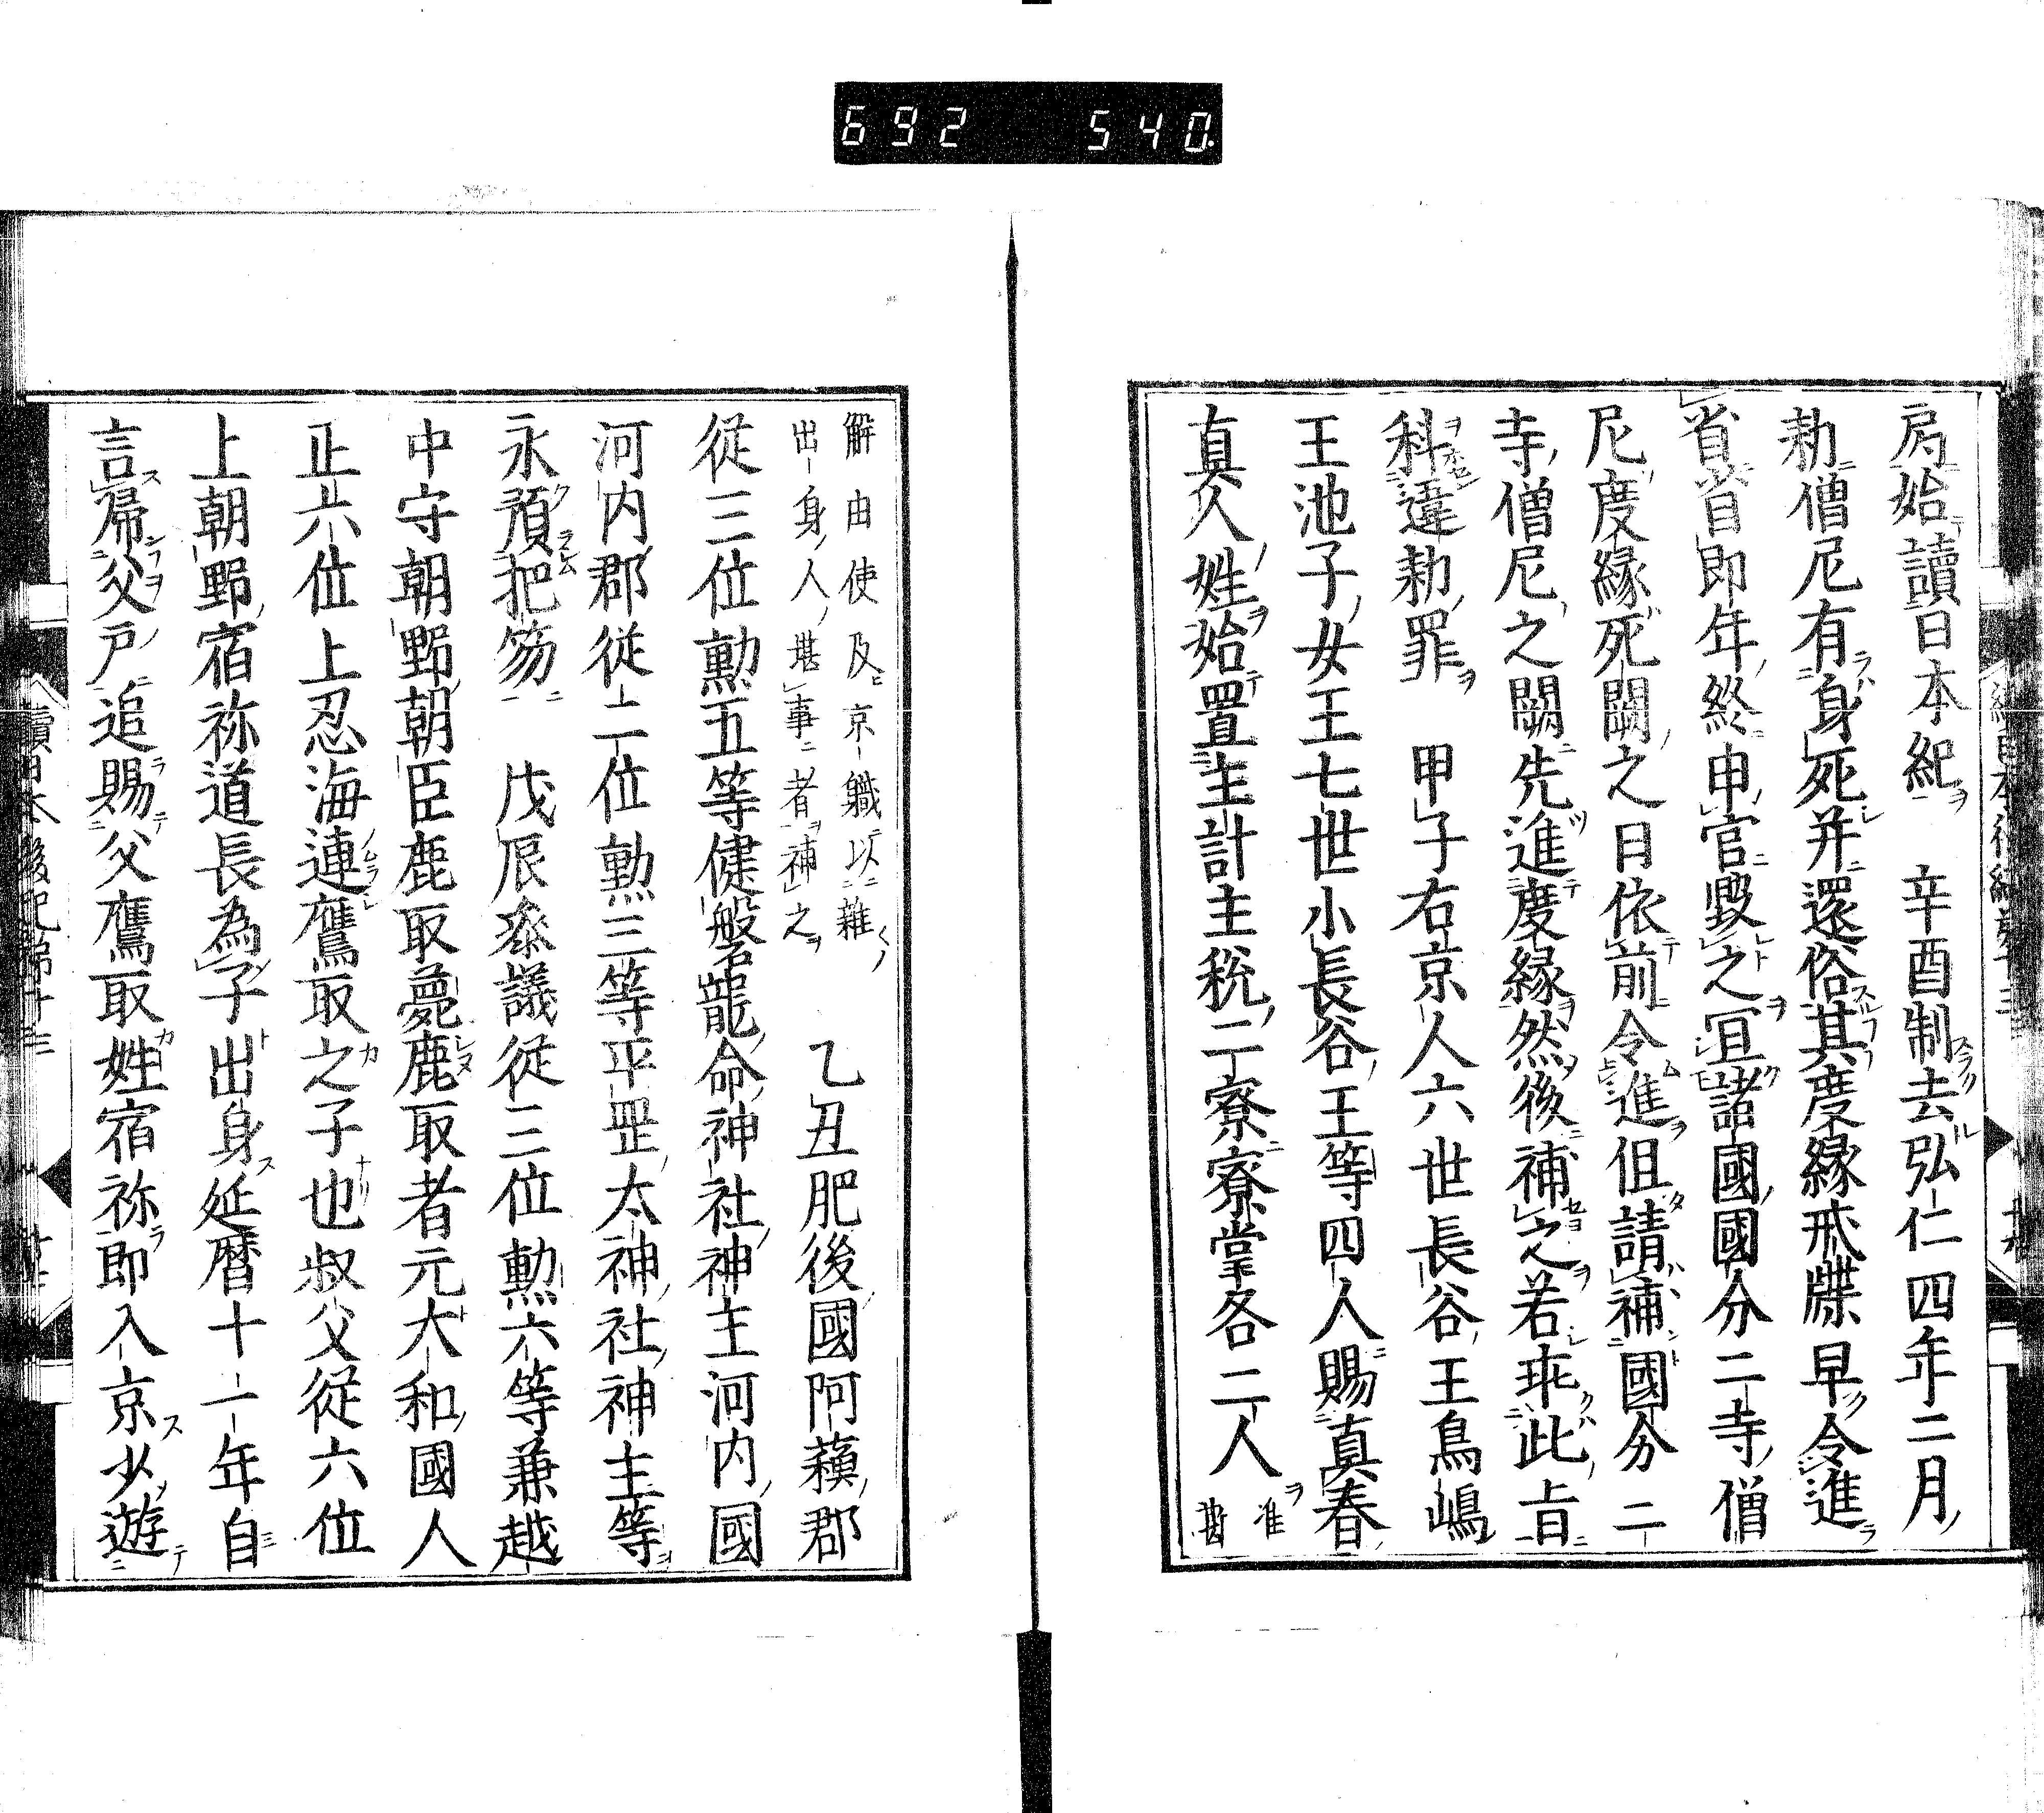 692 540
局始讀日本紀 辛酉制去弘仁四年二月
勅僧尼有身死并還俗其度縁戒牒早令進
省省即年終申官毀之宜諸國國分二寺僧
尼度縁死闕之日依前令進但請補國分二
寺僧尼之闕先進度縁然後補之若乖此旨
科違勅罪 甲子右京人六世長谷王鳥嶋
王池子女王七世小長谷王等四人賜真春
真人姓始置主計主税二寮寮掌各二人
准
勘
解由使及京職以雜
出身人堪事者補之
乙丑肥後國阿蘓郡
從三位勳五等健磐龍命神社神主河内國
河内郡從二位勳三等平罡太神社神主等
永預把笏 戊辰叅議從三位勳六等兼越
中守朝野朝臣鹿取薨鹿取者元大和國人
正六位上忍海連鷹取之子也叔父從六位
上朝野宿祢道長為子出身延曆十一年自
言歸父戸追賜父鷹取姓宿祢即入京少遊